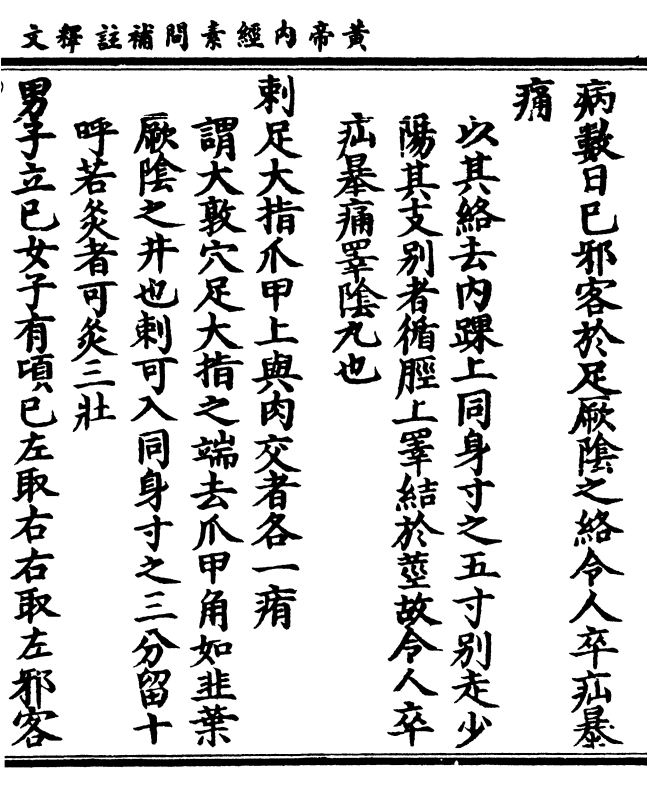 黃帝內經素問補註釋文
病數日已邪客於足厥陰之絡令人卒疝暴
痛
以其絡去內踝上同身寸之五寸別走少
陽其支別者循脛上睪結於莖故令人卒
疝暴痛睪陰丸也
刺足大指爪甲上與肉交者各一痏
謂大敦穴足大指之端去爪甲角如韭葉
厥陰之井也刺可入同身寸之三分留十
呼若灸者可灸三壯
男子立已女子有頃已左取右右取左邪客